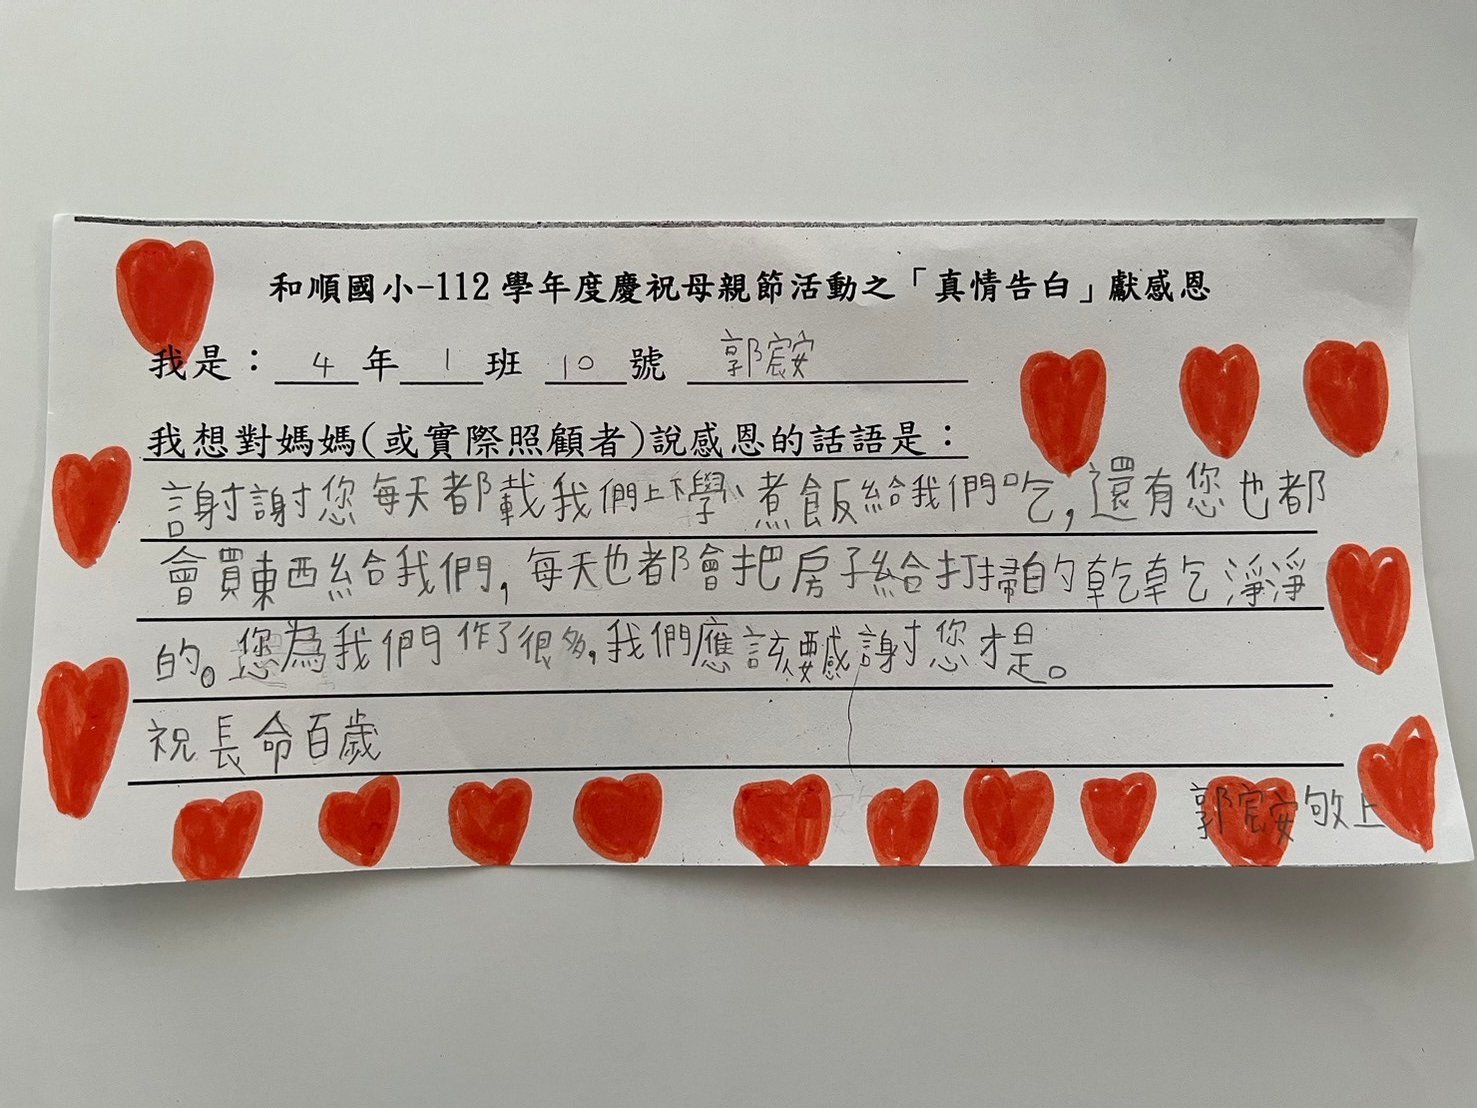 和順國小-112學年度慶祝母親節活動之「真情告白」獻感恩
我是：4年1班 10號 郭宸安
我想對媽媽(或實際照顧者)說感恩的話語是：
謝謝您每天都載我們上下學、煮飯給我們吃，還有您也都
會買東西給我們，每天也都會把房子給打掃的乾乾淨淨
的。您為我們作了很多，我們應該要感謝您才是。
祝長命百歲
郭宸安敬上